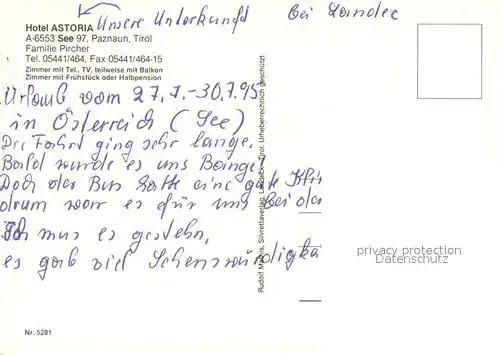 Hotel ASTORIA Unsere Unterkunft bei Landec
A-6553 See 97, Paznaun, Tirol
Familie Pircher
Tel. 05441/464, Fax 05441/464-15
Zimmer mit Tel., TV, teilweise mit Balkon
Zimmer mit Frühstück oder Halbpension
Urlaub vom 27.7.-30.7.95
in Österreich (See)
Die Fahrt ging sehr lange.
Bald wurde es uns Bange!
Doch der Bus hatte eine gute Kli
drum war es für uns bei der
Ich mus es gestehn,
es gab viel Sehenswürdigke
Rudolf Mathis, Silvrettaverlag, Landeck-Tirol. Urheberrechtlich geschützt
privacy protection
Datenschutz
Nr. 5281